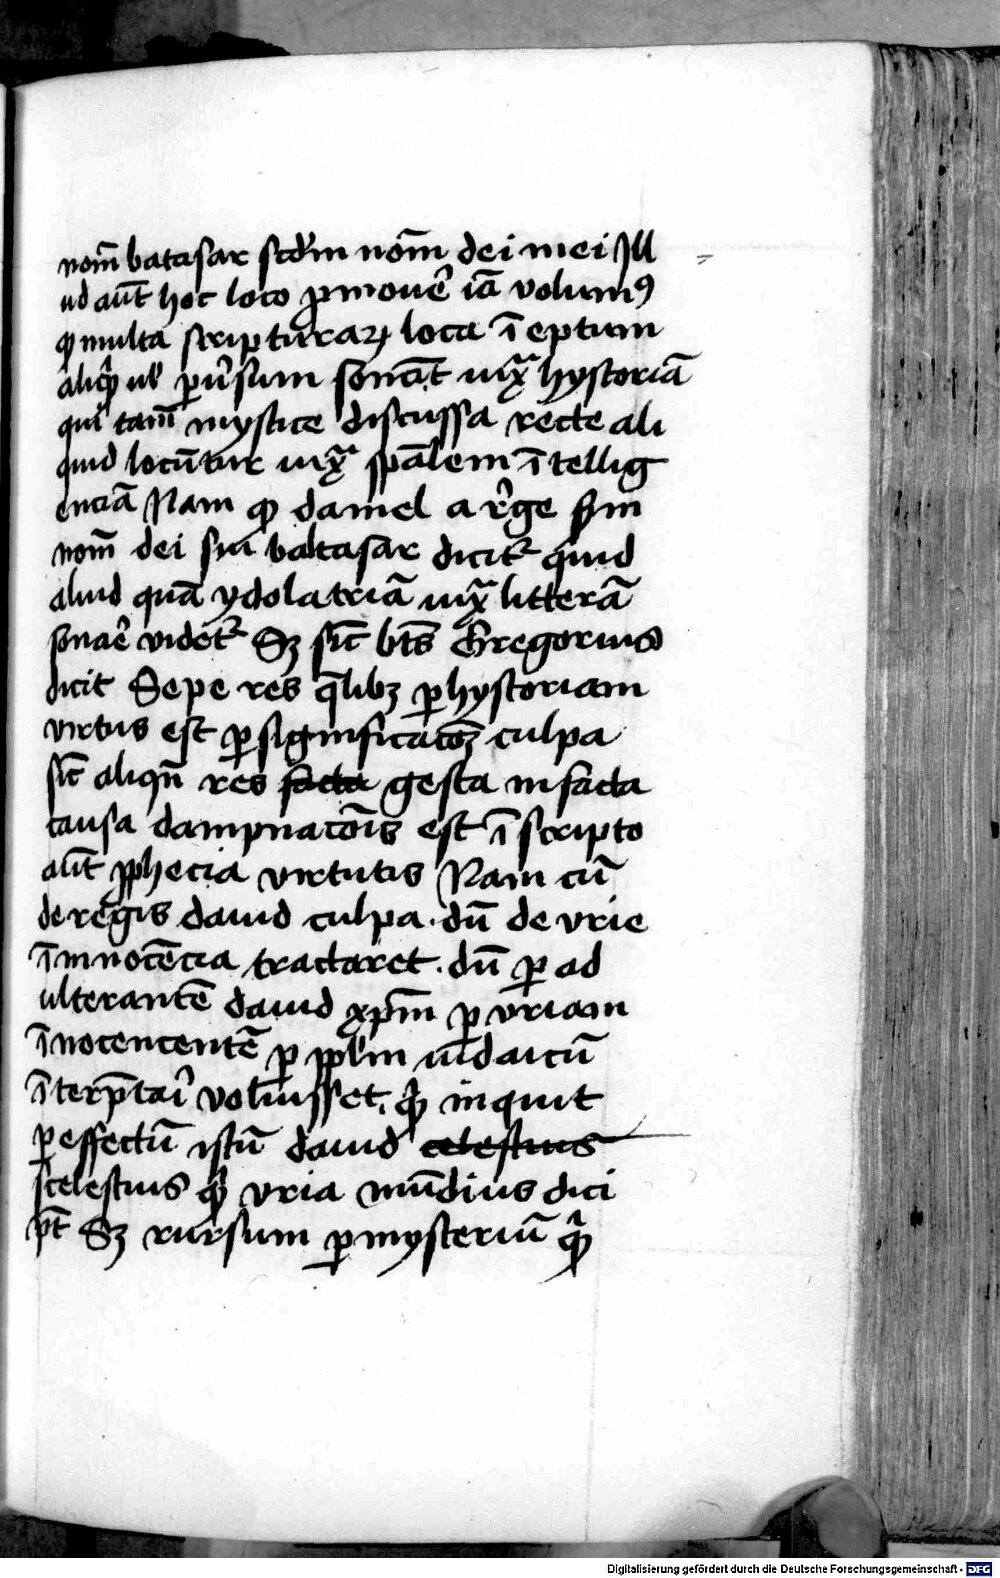 nom̄ batasar scd'm nom̄ dei mei Ill
ud aūt hoc loco ꝓmouē iā volumꝰ
ꝙ multa scripturaꝝ loca ī eptum
aliqͥd ul' ꝑuͥsum sonāt iuxͣ hystoriā
qui tam̄ mystice discussa recte ali
quid locūtur iuxͣ spālem ī tellig
enciā Nam ꝙ daniel a rͤge s̄m
nom̄ dei sui baltasar dicitᷣ quid
aliud quā ydolatriā iuxͣ litterā
sonaē videtᷣ Sꝫ sic̄ bt̄s Gregorius
dicit Sepe res q̄libꝫ ꝑ hystoriam
virtus est ꝑ significacōꝫ culpa
sic̄ aliqn̄ res facta gesta in facta
causa dampnacōis est ī scripto
aūt ꝓphecia virtutis Nam cū
de regis dauid culpa . dū de vrie
ī innocēcia tractaret . dū ꝑ ad
ulterantē dauid xp̄m ꝑ vriam
ī nocencentē ꝑ ppl'm iudaicū
ī terp̄tai voluisset. qͥd inquit
ꝑ effectū istū dauid celestius
scelestius qͥd vria mūdius dici
pt̄ Sꝫ rursum ꝑ mysteriū qͥd
Digitalisierung gefördert durch die Deutsche Forschungsgemeinschaft - DFG